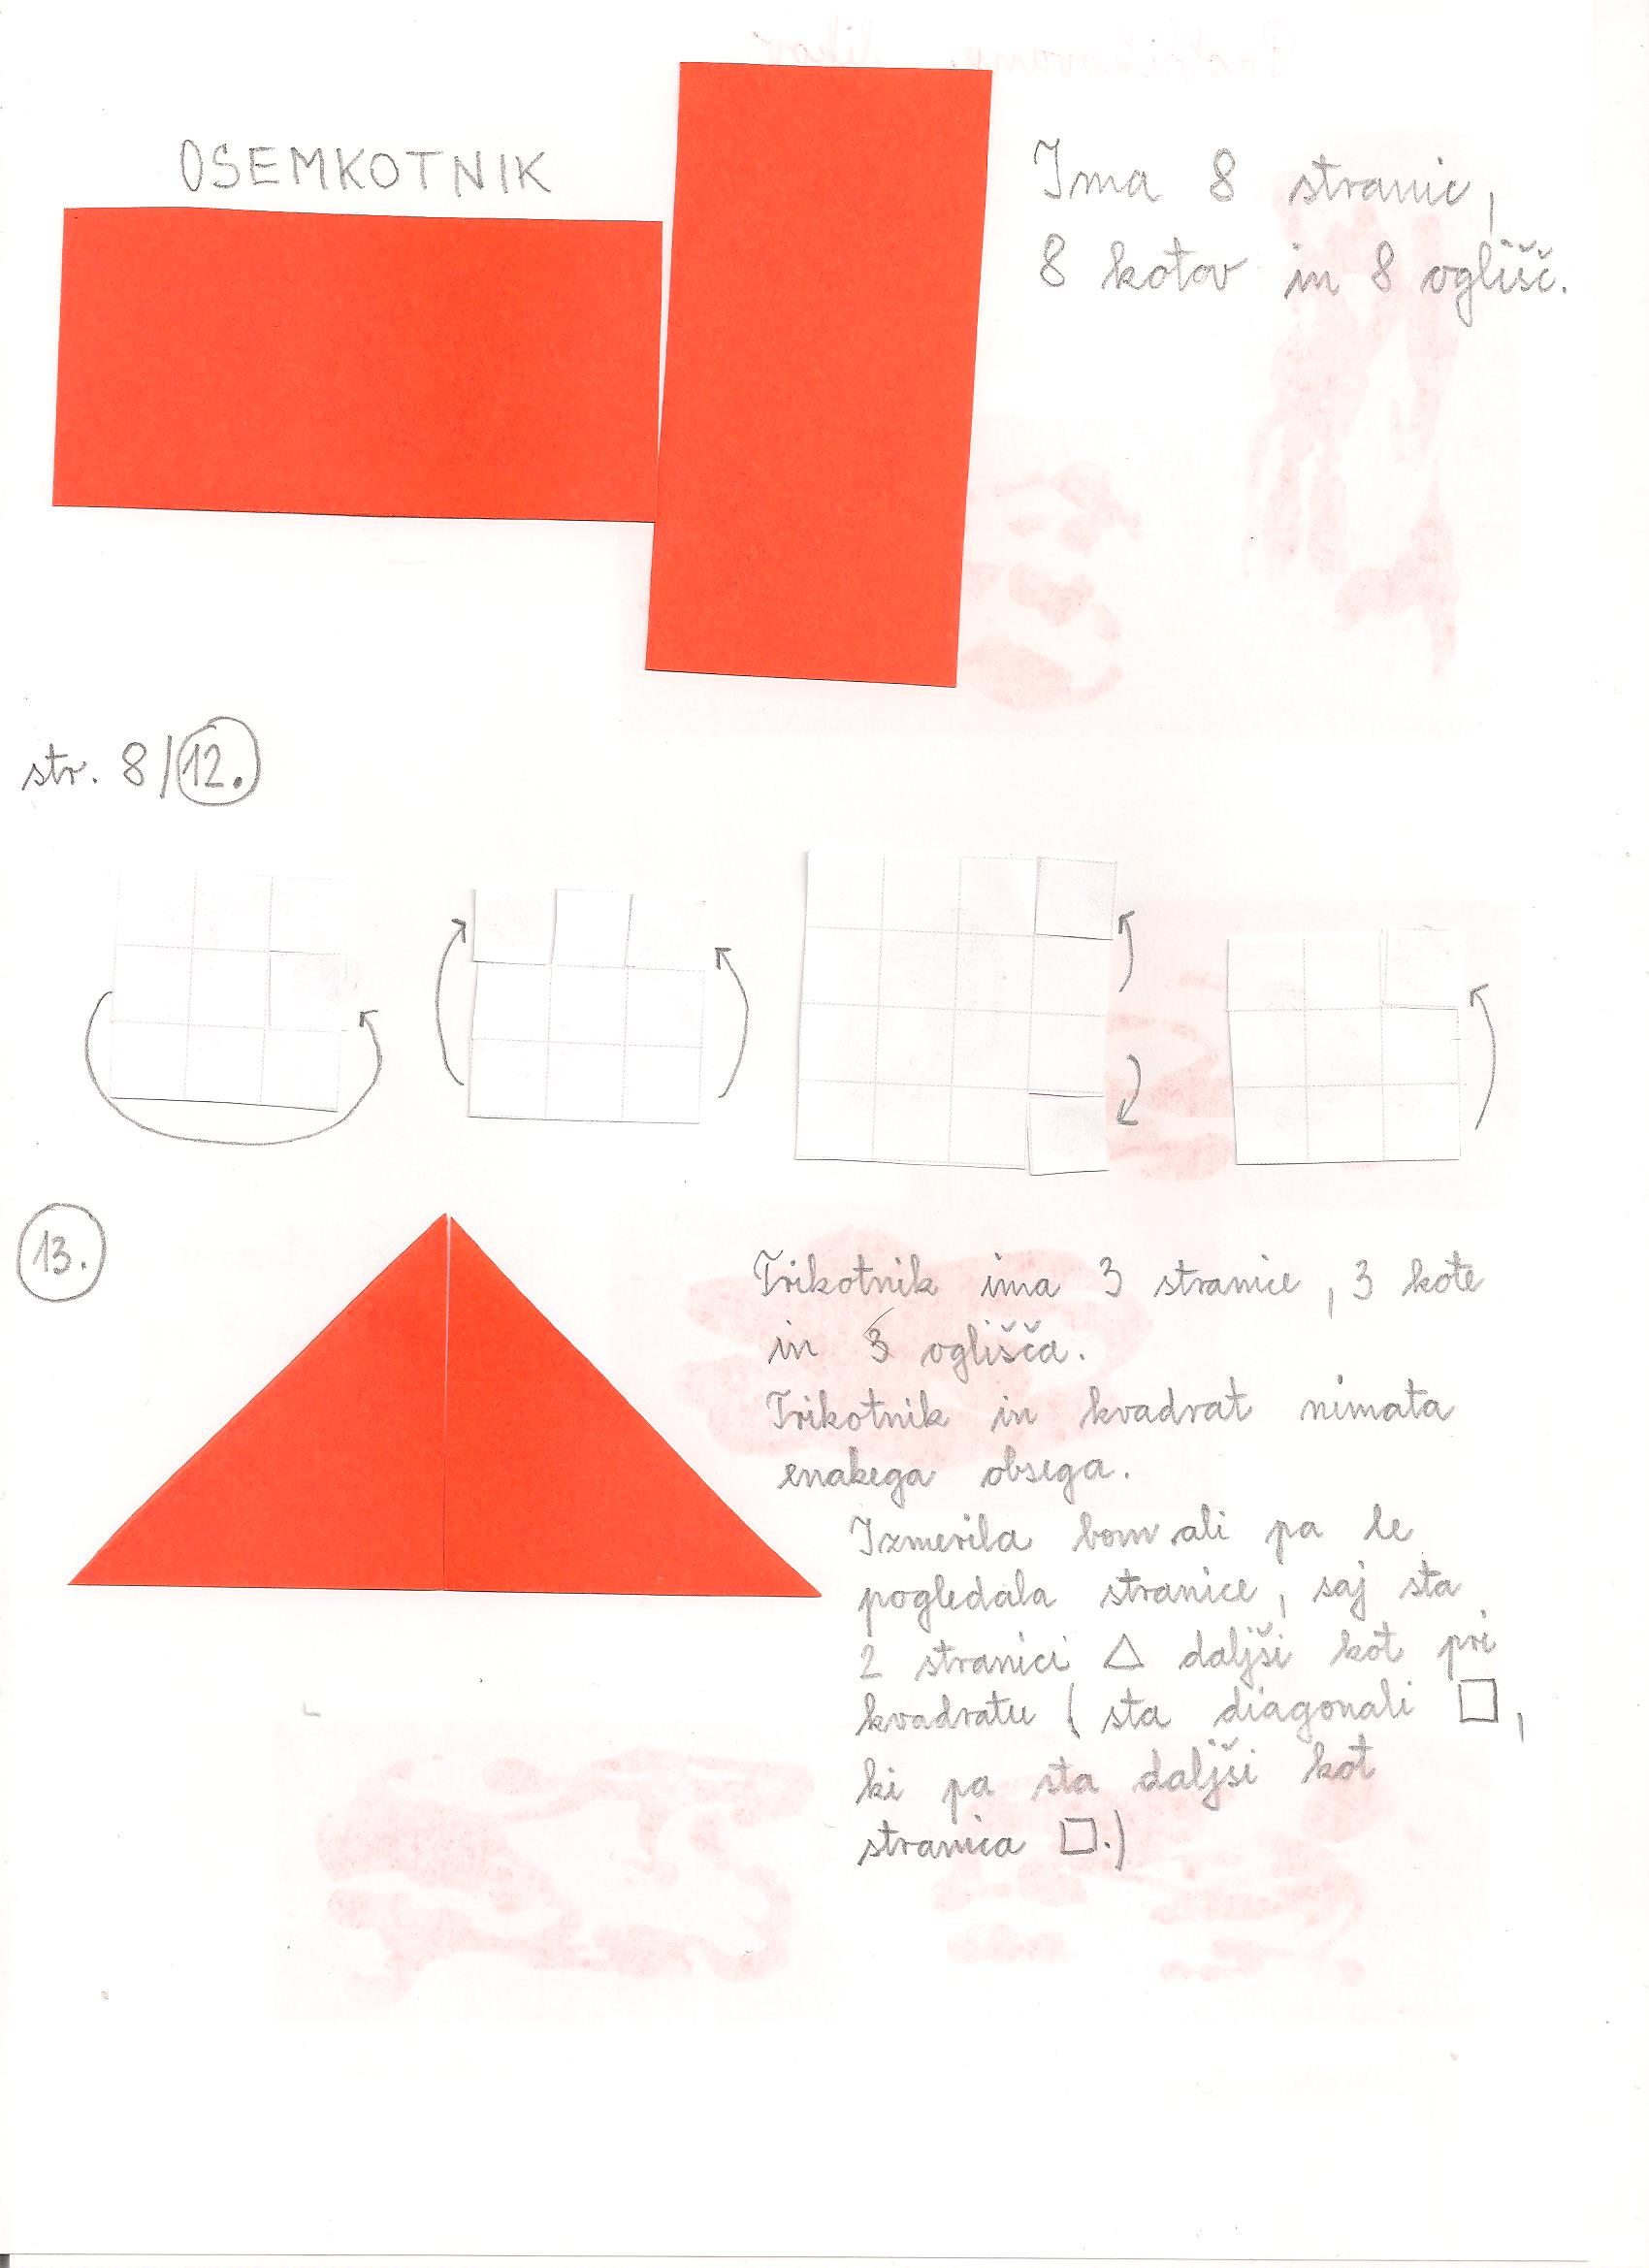 OSEMKOTNIK
Ima 8 stranic,
8 kotov in 8 oglišč.
str. 8/12.
13.
Trikotnik ima 3 stranice, 3 kote
in 3 oglišča.
Trikotnik in kvadrat nimata
enakega obsega.
Izmerila bom ali pa le
pogledala stranice, saj sta
2 stranici △ daljši kot pri
kvadratu (sta diagonali □,
ki pa sta daljši kot
stranica □.)